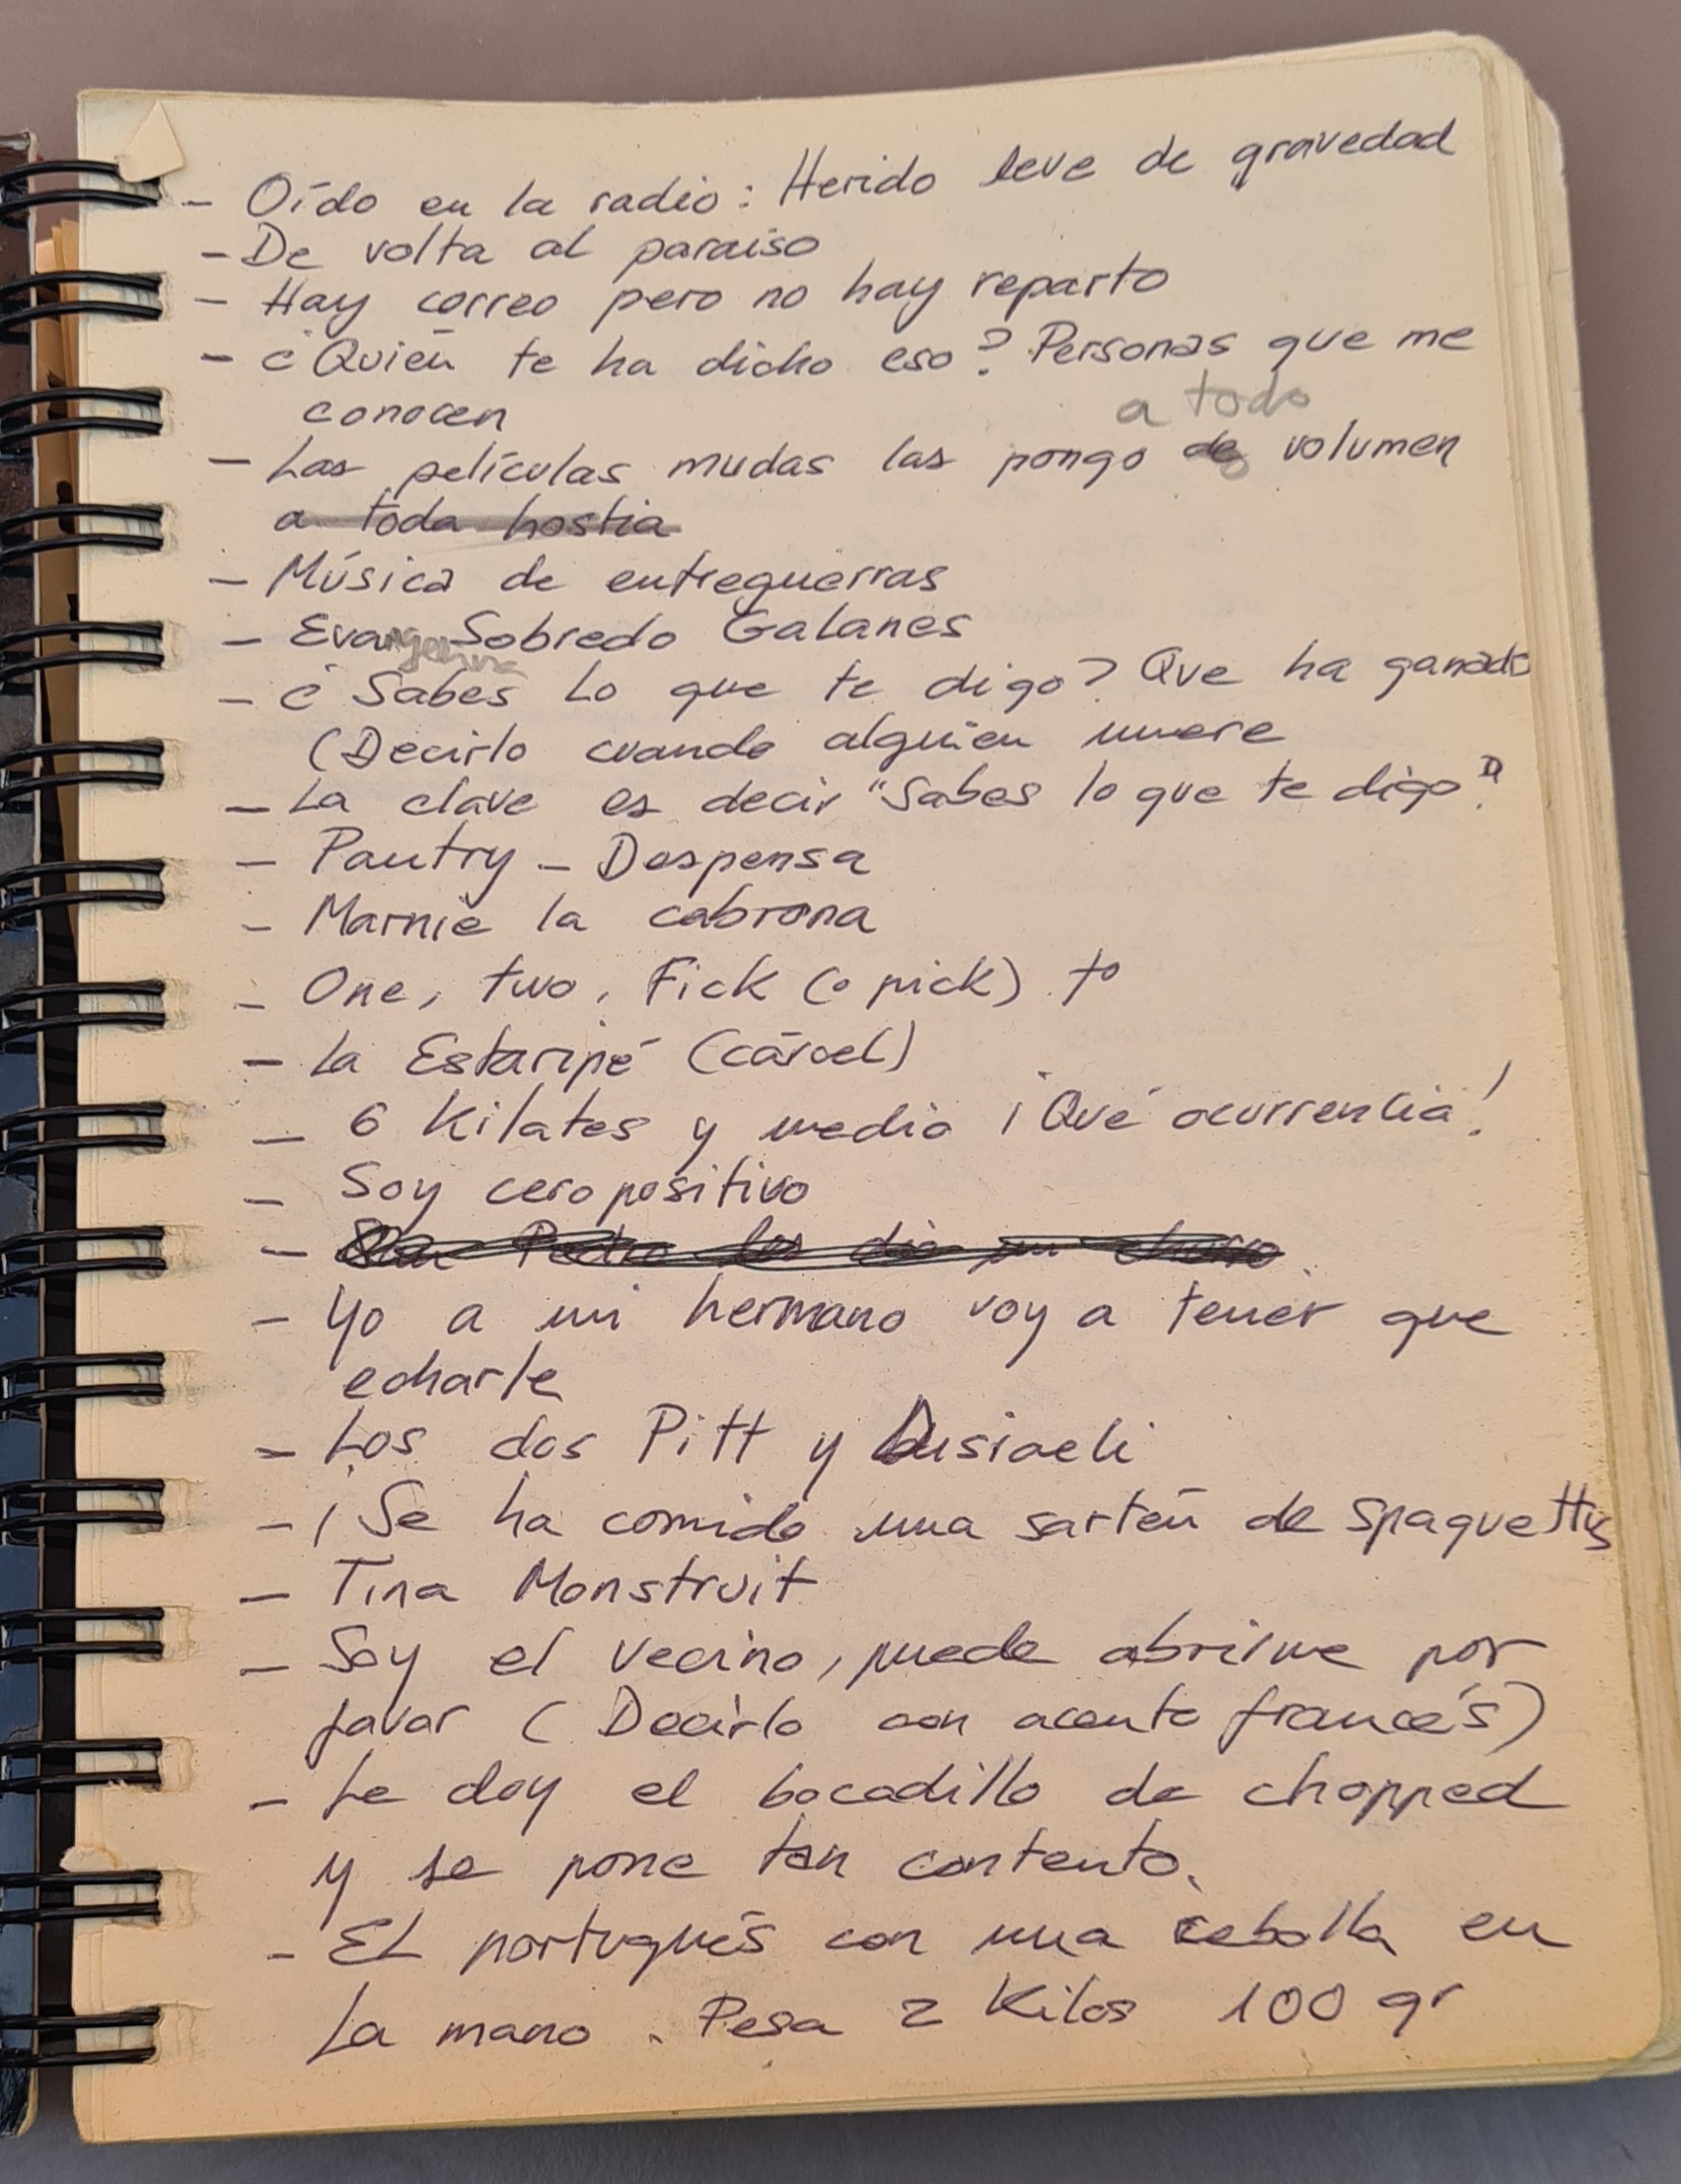 - Oído en la radio: Herido leve de gravedad
- De volta al paraiso
- Hay correo pero no hay reparto
- ¿Quién te ha dicho eso? Personas que me
conocen
a todo
- Las películas mudas las pongo de volumen
a toda hostia
- Música de entreguerras
- Evangelina Sobredo Galanes
- ¿Sabes lo que te digo? Que ha ganado
(Decirlo cuando alguien muere
- La clave es decir "Sabes lo que te digo?"
- Pantry - Despensa
- Marnie la cabrona
- One, two, Fick (o pick) to
- La Estaripé (cárcel)
- 6 Kilates y medio ¡Qué ocurrencia!
- Soy cero positivo
- Pedro les dio un
- Yo a mi hermano voy a tener que
echarle
- Los dos Pitt y Disraeli
- ¡Se ha comido una sartén de spaguettis
- Tina Monstruit
- Soy el vecino, puede abrirme por
favor (Decirlo con acento francés)
- Le doy el bocadillo de chopped
y se pone tan contento.
- El portugués con una cebolla en
La mano. Pesa 2 Kilos 100 gr